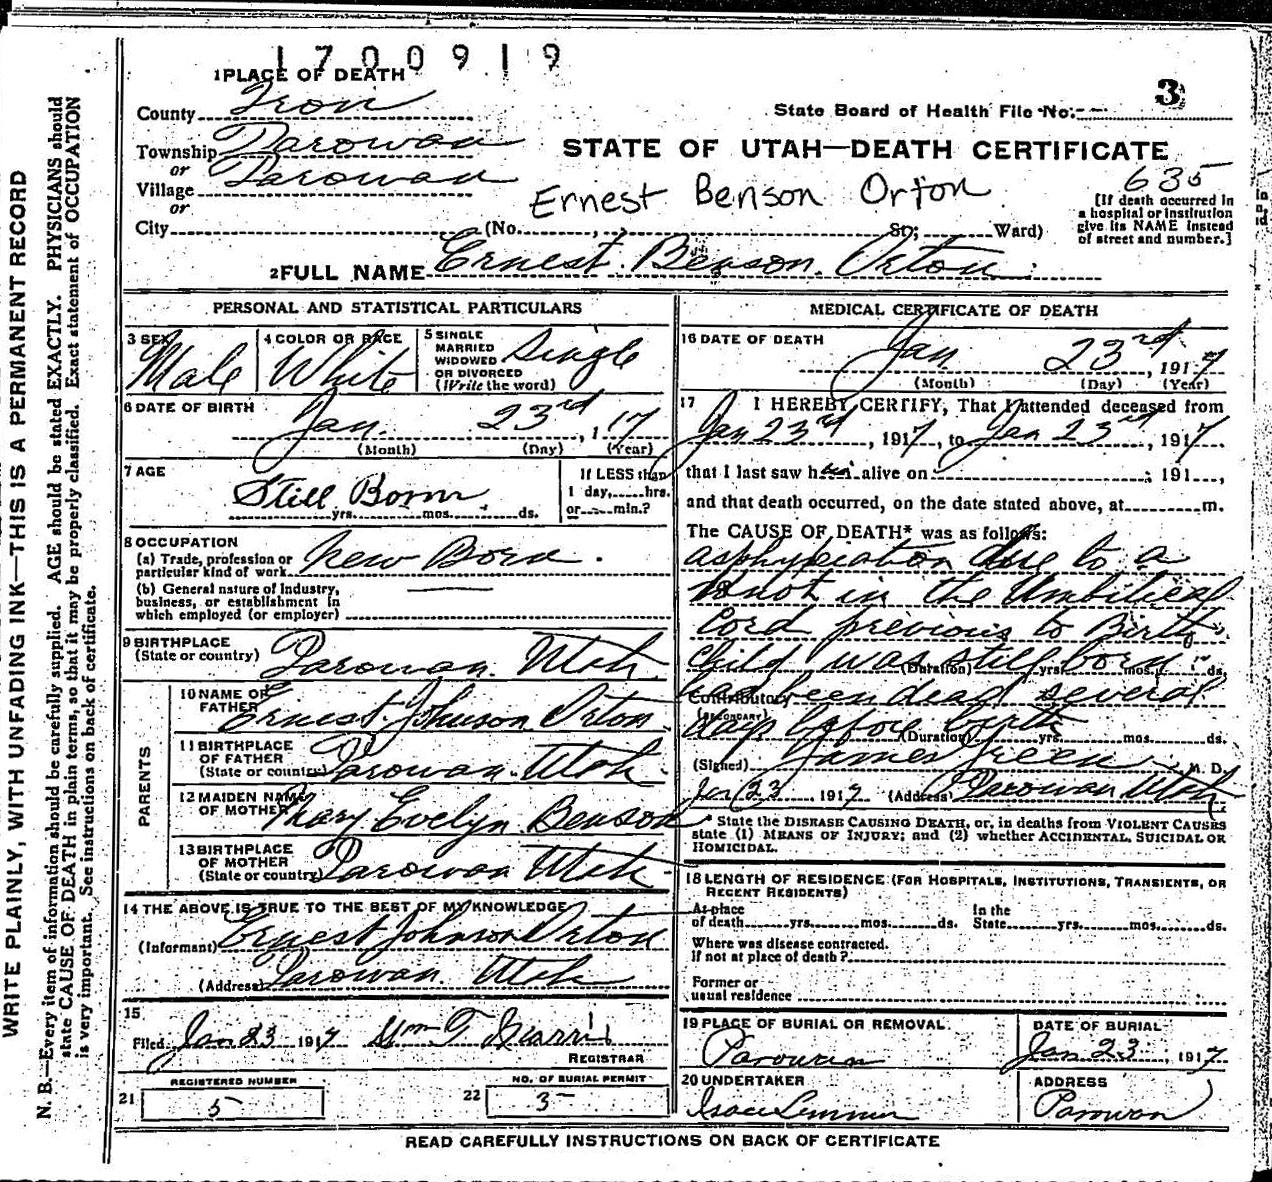 1700919
1 PLACE OF DEATH
3
County Iron
State Board of Health File No.
Township Parowan
STATE OF UTAH—DEATH CERTIFICATE
or
Village Parowan
635
or
Ernest Benson Orton
[If death occurred in
a hospital or institution
give its NAME instead
of street and number.]
City (No. , St; Ward)
2 FULL NAME Ernest Benson Orton
PERSONAL AND STATISTICAL PARTICULARS
3 SEX Male
4 COLOR OR RACE White
5 SINGLE
MARRIED
WIDOWED
OR DIVORCED
(Write the word) Single
6 DATE OF BIRTH
Jan. 23rd, 1 17
(Month) (Day) (Year)
7 AGE
Still Born
yrs. mos. ds.
If LESS than
1 day, hrs.
or min.?
8 OCCUPATION
(a) Trade, profession or
particular kind of work New Born.
(b) General nature of Industry,
business, or establishment in
which employed (or employer)
9 BIRTHPLACE
(State or country) Parowan. Utah.
PARENTS
10 NAME OF
FATHER Ernest Johnson Orton.
11 BIRTHPLACE
OF FATHER
(State or country) Parowan. Utah.
12 MAIDEN NAME
OF MOTHER Mary Evelyn Benson
13 BIRTHPLACE
OF MOTHER
(State or country) Parowan Utah.
14 THE ABOVE IS TRUE TO THE BEST OF MY KNOWLEDGE
(Informant) Ernest Johnson Orton
(Address) Parowan. Utah
15
Filed Jan 23 1917 Wm T. Harris
REGISTRAR
REGISTERED NUMBER
21 5
NO. OF BURIAL PERMIT
22 3
MEDICAL CERTIFICATE OF DEATH
16 DATE OF DEATH
Jan 23rd, 1917
(Month) (Day) (Year)
17 I HEREBY CERTIFY, That I attended deceased from
Jan 23rd, 1917, to Jan 23rd, 1917.
that I last saw him alive on ; 191 ,
and that death occurred, on the date stated above, at m.
The CAUSE OF DEATH* was as follows:
asphyxiation due to a
Knot in the Umbilical
Cord previous to Birth.
Child was still born
(Duration) yrs. mos. ds.
has been dead several
Contributory
(SECONDARY)
days before birth
(Duration) yrs. mos. ds.
(Signed) James Green M. D.
Jan 23 1917 (Address) Parowan Utah
* State the DISEASE CAUSING DEATH, or, in deaths from VIOLENT CAUSES
state (1) MEANS OF INJURY; and (2) whether ACCIDENTAL, SUICIDAL OR
HOMICIDAL.
18 LENGTH OF RESIDENCE (FOR HOSPITALS, INSTITUTIONS, TRANSIENTS, OR
RECENT RESIDENTS)
At place In the
of death yrs. mos. ds. State yrs. mos. ds.
Where was disease contracted.
If not at place of death?
Former or
usual residence
19 PLACE OF BURIAL OR REMOVAL.
Parowan
DATE OF BURIAL
Jan 23, 1917
20 UNDERTAKER
ADDRESS
Parowan
READ CAREFULLY INSTRUCTIONS ON BACK OF CERTIFICATE
WRITE PLAINLY, WITH UNFADING INK—THIS IS A PERMANENT RECORD
N. B.—Every item of information should be carefully supplied. AGE should be stated EXACTLY. PHYSICIANS should
state CAUSE OF DEATH in plain terms, so that it may be properly classified. Exact statement of OCCUPATION
is very important. See instructions on back of certificate.